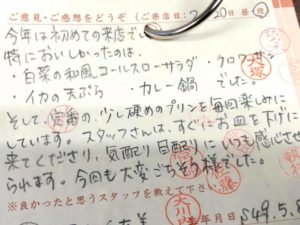 ご意見・ご感想をどうぞ(ご来店日: 2 20日 昼 夜
今年は初めての来店で
特においしかったのは、
・白菜の和風コールスローサラダ ・クロワッサン
・イカの天ぷら ・カレー鍋 でした。
そして、定番の、少し硬めのプリンを毎回楽しみに
しています。スタッフさんは、すぐにお皿を下げに
来てくださり、気配り目配りにいつも感心させ
られます。今回も大変ごちそう様でした。
※良かったと思うスタッフを教えて下さい。
年 月 日 S49.5.8